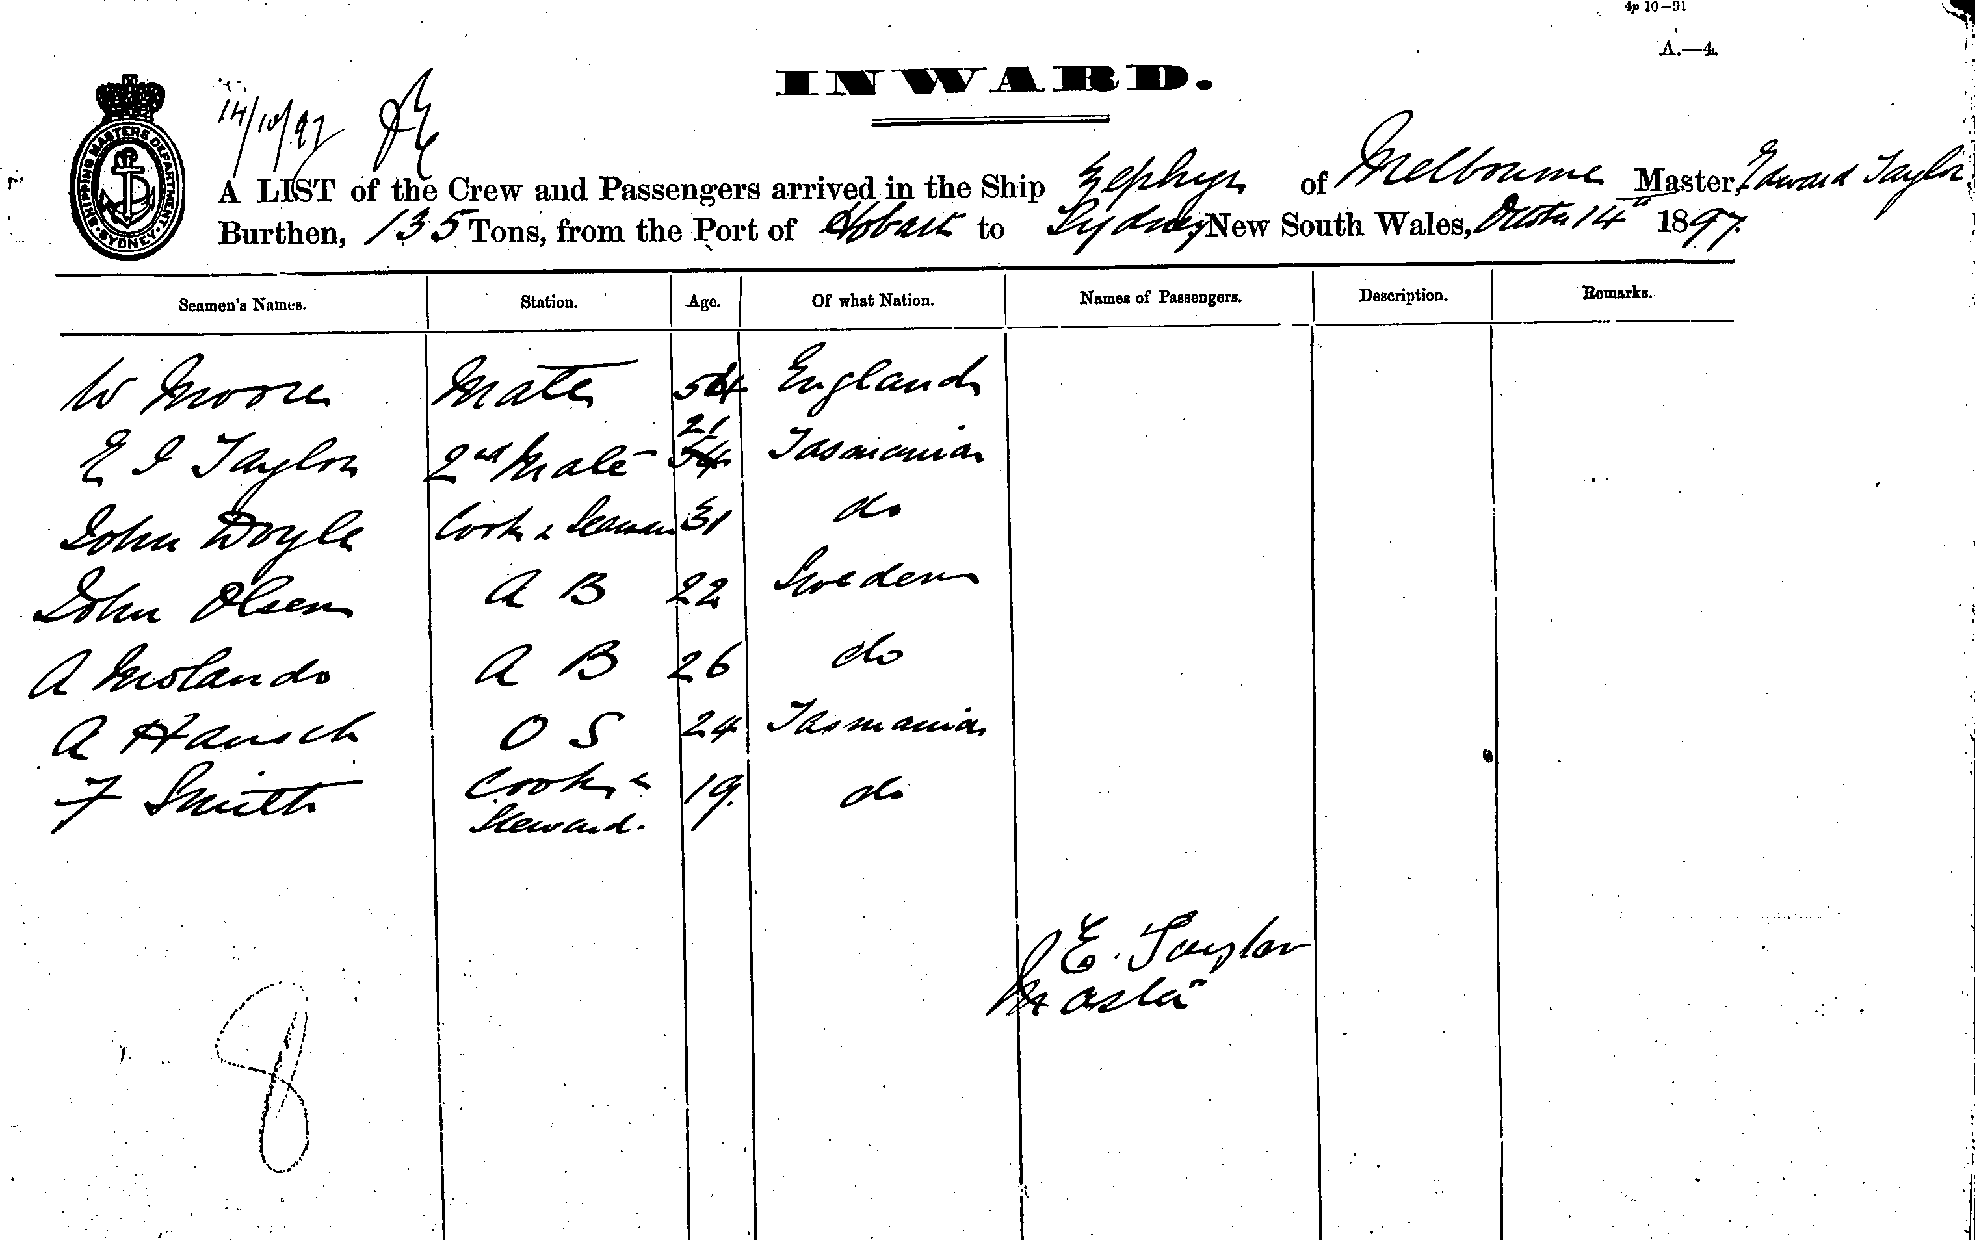 4p 10-91
A.—4.
INWARD.
14/10/97
SHIPPING MASTERS DEPARTMENT SYDNEY
A LIST of the Crew and Passengers arrived in the Ship Zephyr of Melbourne Master, Edward Taylor
Burthen, 135 Tons, from the Port of Hobart to Sydney New South Wales, October 14" 1897.
Seamen's Names. Station. Age. Of what Nation. Names of Passengers. Description. Remarks.
W Moore Mate 54 England
21
E I Taylor 2nd Mate 54 Tasmania
John Doyle Cook & Seaman 31 do
John Olsen A B 22 Sweden
A A B 26 do
A O S 24 Tasmania
F Smith Cook & 19 do
Steward.
E. Taylor
Master
8